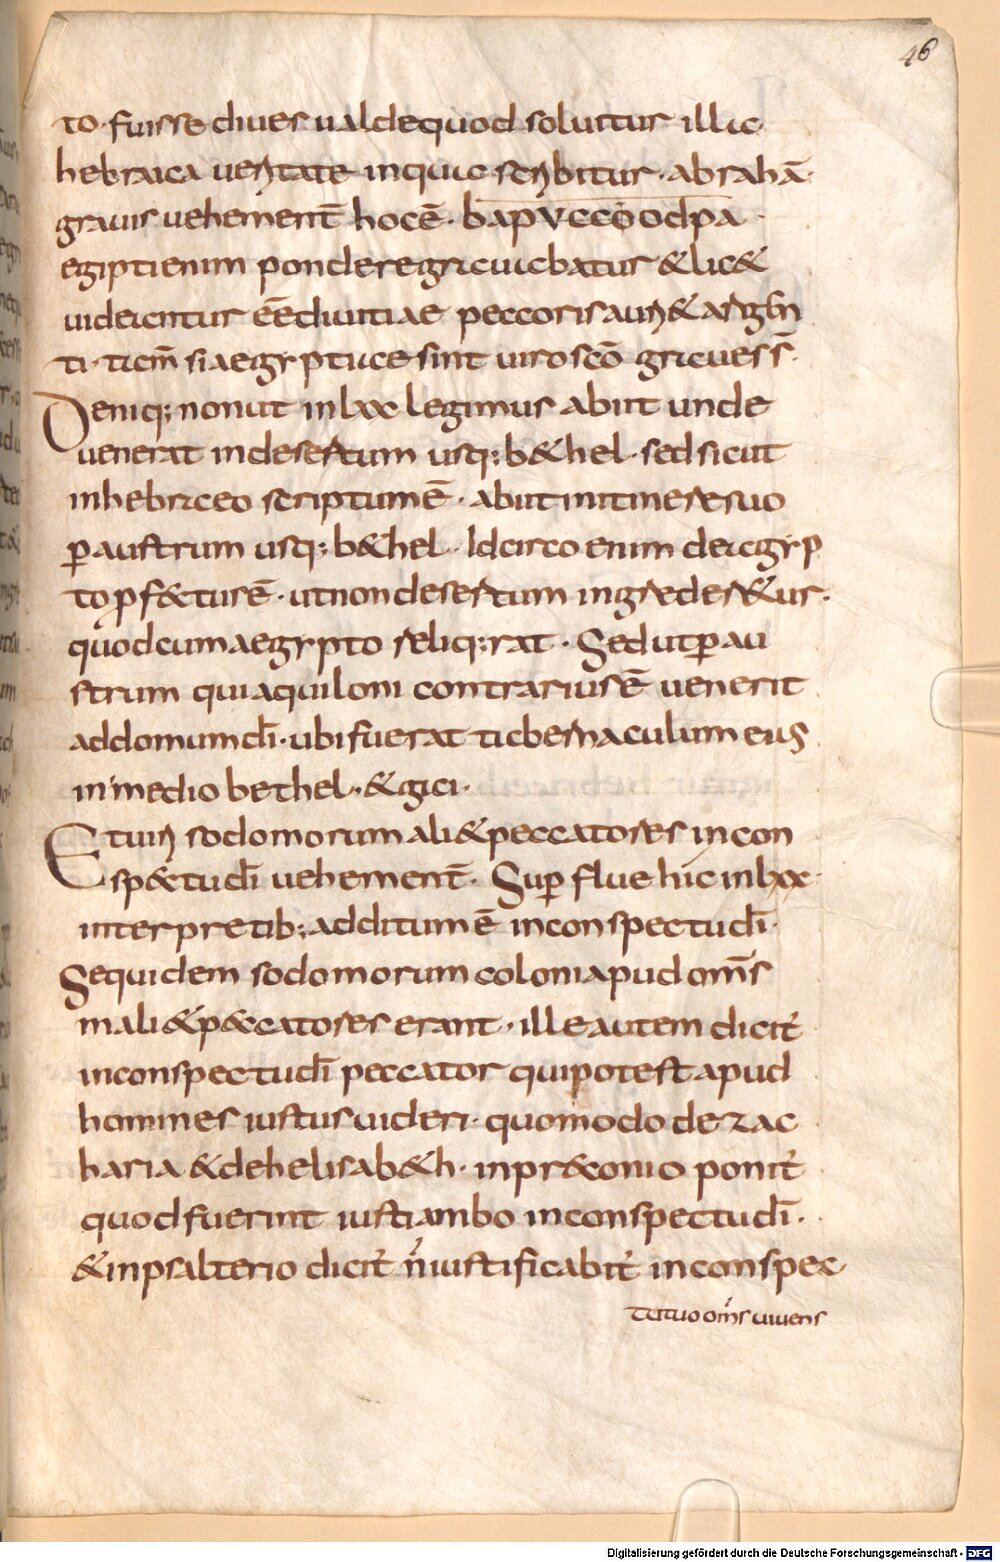 46
to· fuisse diues ualde quod soluitur illic
hebraica ueritate in qua scribitur · abrahā ·
grauis uehement̄ hoc ē · bapyccoodpa ·
egipti enim pondere grauabatur & lic&
uideantur eē diuitiae peccoris auri & argen
ti · tam̄ si aegyptiace sint uiro scō graues s̄ ·
Deniq; non ut in lxx legimus abiit unde
uenerat in desertum usq; b&hel · sed sicut
in hebraeo scriptum ē · abiit itinere suo
p̱ austrum usq; b&hel · Idcirco enim de aegyp
to ꝓf&tus ē · ut non desertum ingreder&ur ·
quod cum aegypto reliq;rat · Sed ut p̱ au
strum qui aquiloni contrarius ē uenerit
ad domum dī · ubi fuerat tabernaculum eius
in medio bethel · & gai ·
Et uiri sodomorum mali & peccatores in con
sp&tu dī uehement̄ · Sup̱flue hic in lxx ·
interpretib; additum ē in conspectu dī ·
Sequidem sodomorum coloni apud om̄s
mali & p&catores erant · ille autem dicit̄
in conspectu dī peccator qui potest apud
homines iustus uideri · quomodo de zac
haria & de helisab&h · in pr&conio ponit̄
quod fuerint iusti ambo in conspectu dī ·
& in psalterio dicit̄ n̄ iustificabit̄ in conspec
tu tuo om̄s uiuens
Digitalisierung gefördert durch die Deutsche Forschungsgemeinschaft - DFG